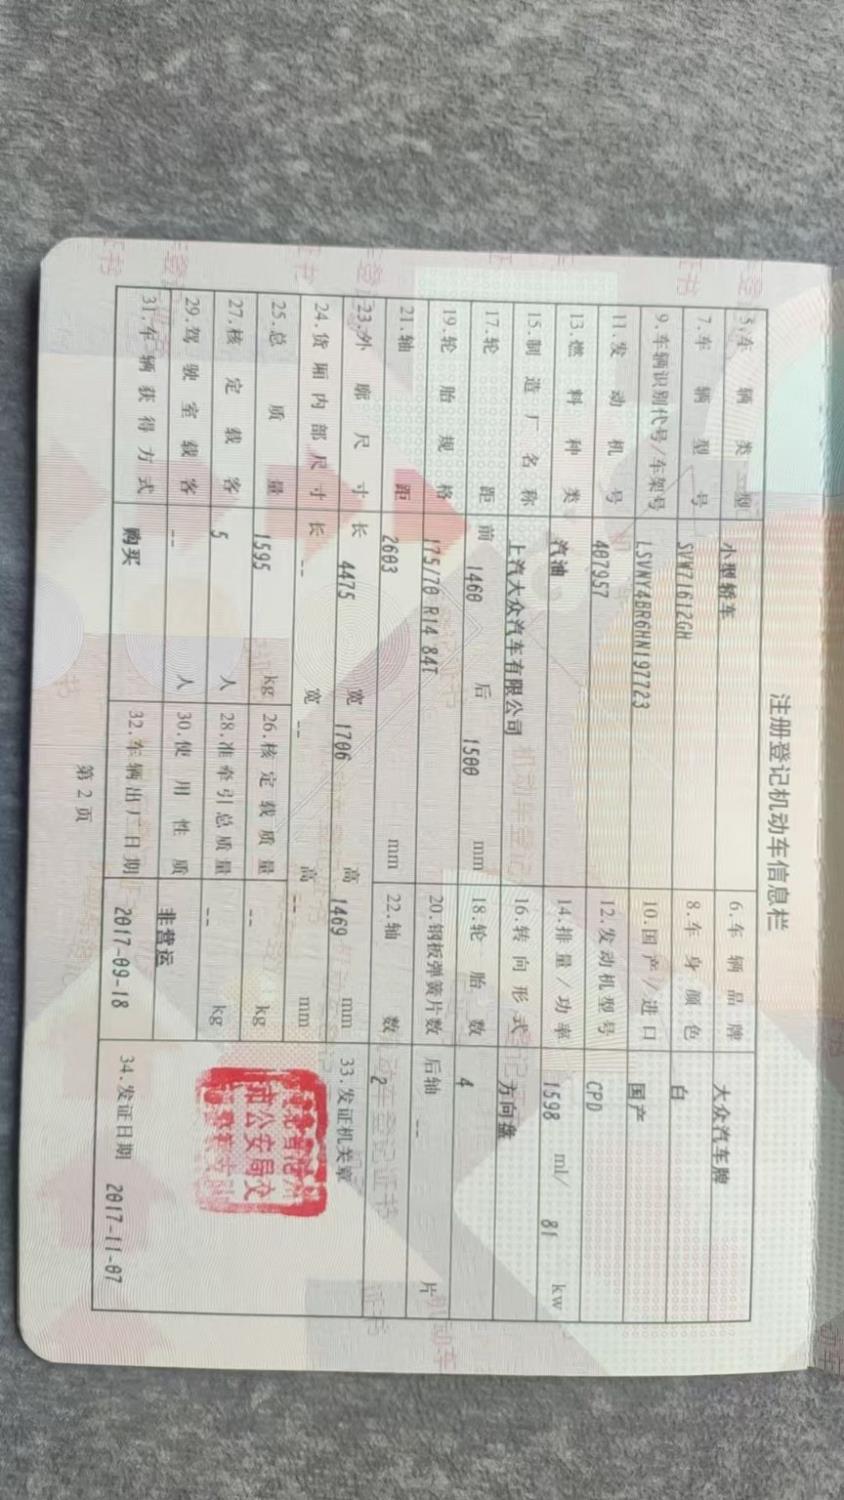 注册登记机动车信息栏
5.车辆类型 小型轿车 6.车辆品牌 大众汽车牌
7.车辆型号 SVW71612GH 8.车身颜色 白
9.车辆识别代号/车架号 LSVNY4BR6HN197723 10.国产/进口 国产
11.发动机号 407957 12.发动机型号 CPD
13.燃料种类 汽油 14.排量/功率 1598 ml/ 81 kw
15.制造厂名称 上汽大众汽车有限公司 16.转向形式 方向盘
17.轮距 前 1460 后 1500 mm 18.轮胎数 4
19.轮胎规格 175/70 R14 84T 20.钢板弹簧片数 后轴 -- 片
21.轴距 2603 mm 22.轴数 2
23.外廓尺寸 长 4475 宽 1706 高 1469 mm 33.发证机关章
24.货厢内部尺寸 长 -- 宽 -- 高 -- mm
25.总质量 1595 kg 26.核定载质量 -- kg
27.核定载客 5 人 28.准牵引总质量 -- kg
29.驾驶室载客 -- 人 30.使用性质 非营运
31.车辆获得方式 购买 32.车辆出厂日期 2017-09-18 34.发证日期 2017-11-07
市公安局交
第2页